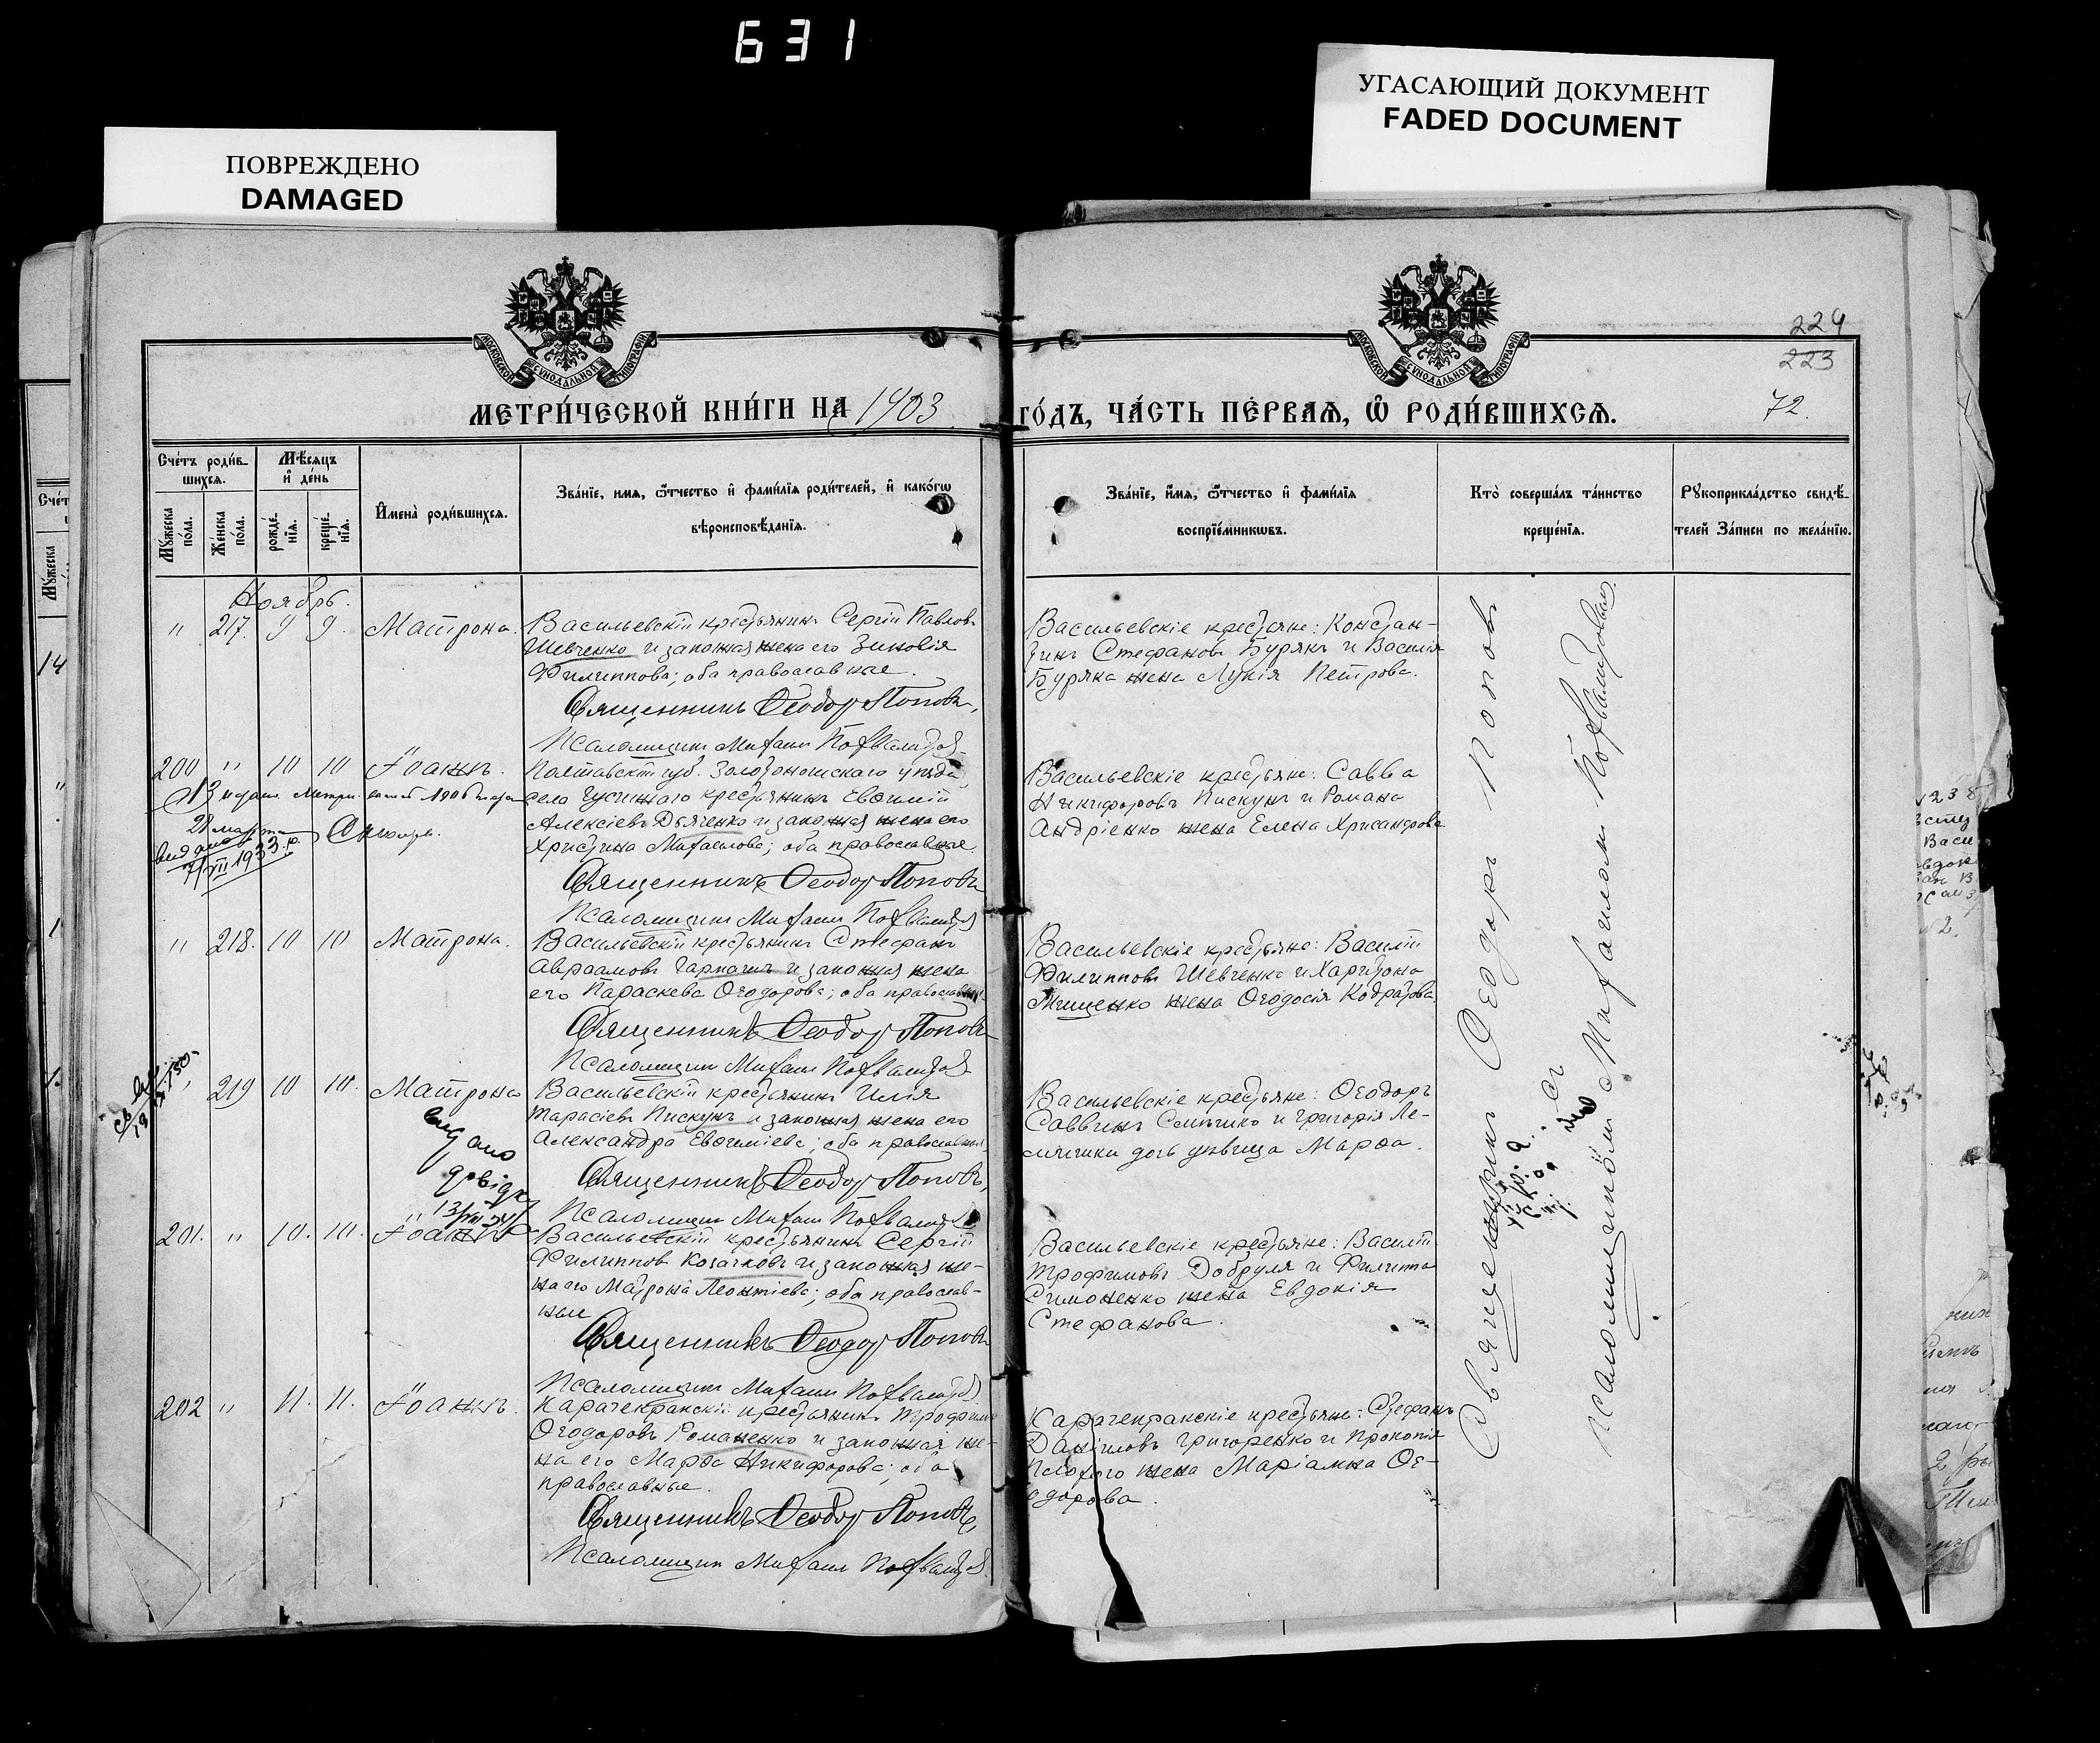 631
УГАСАЮЩИЙ ДОКУМЕНТ
FADED DOCUMENT
ПОВРЕЖДЕНО
DAMAGED
МОСКОВСКОЙ СѴНОДАЛЬНОЙ ТИПОГРАФІИ
МОСКОВСКОЙ СѴНОДАЛЬНОЙ ТИПОГРАФІИ
224
223
МЕТРИ́ЧЕСКОЙ КНИ́ГИ НА 1903
ГО́ДЪ, ЧА́СТЬ ПЕ́РВАЯ, Ѿ РОДИ́ВШИХСЯ.
72.
Сче́тъ роди́вшихся.
Мꙋ́жеска по́ла.
Же́нска по́ла.
Мѣ́сяцъ и де́нь
рожде́нія.
креще́нія.
Имена̀ роди́вшихся.
Зва́ніе, имя, ѻ́тчество и фами́лія роди́телей, и како́гѡ
вѣроисповѣ́данія.
Зва́ніе, и́мя, ѻ́тчество и фами́лія
воспріе́мникѡвъ.
Кто̀ соверша́лъ та́инство
креще́нія.
Рꙋкоприкла́дство свидѣ́-
телей За́писи по жела́нію.
Ноябрь.
" 217. 9 9. Матрона.
Васильевскій крестьянинъ Сергій Павловъ
Шевченко и законная жена его Зиновія
Филиппова; оба православные.
Священникъ Ѳеодоръ Поповъ,
Псаломщикъ Михаилъ
Васильевскіе крестьяне: Констан-
тинъ Стефановъ Бурякъ и Василія
Буряка жена Лукія Петрова.
200 " 10 10 Іоаннъ.
Полтавской губ. Золотоношскаго уѣзда,
села крестьянинъ Евѳимій
Алексіевъ Дьяченко и законная жена его
Христина Михаилова; оба православные.
Священникъ Ѳеодоръ Поповъ
Псаломщикъ Михаилъ
Васильевскіе крестьяне: Савва
Никифоровъ Пискунъ и Романа
Андріенко жена Елена Хрисанфова
28 марта
1933 р.
" 218. 10 10 Матрона.
Васильевскій крестьянинъ Стефанъ
Авраамовъ и законная жена
его Параскева Ѳеодорова; оба православные.
Священникъ Ѳеодоръ Поповъ
Псаломщикъ Михаилъ
Васильевскіе крестьяне: Василій
Филипповъ Шевченко и Харитона
Мищенко жена Ѳеодосія Кодратова
219 10 10. Матрона
Васильевскій крестьянинъ Илія
Тарасіевъ Пискунъ и законная жена его
Александра Евѳиміева; оба православные.
Священникъ Ѳеодоръ Поповъ,
Псаломщикъ Михаилъ
Васильевскіе крестьяне: Ѳеодоръ
Саввинъ и Григорія Ле-
дочь дѣвица Марѳа.
видано
довідку
201. " 10. 10. Іоаннъ
Васильевскій крестьянинъ Сергій
Филипповъ Козачковъ и законная же-
на его Матрона Леонтіева; оба православ-
ные
Священникъ Ѳеодоръ Поповъ
Псаломщикъ Михаилъ
Васильевскіе крестьяне: Василій
Трофимовъ Добруля и Филиппа
Симоненко жена Евдокія
Стефанова.
202 " 11. 11. Іоаннъ.
Карачекракскій крестьянинъ Трофимъ
Ѳеодоровъ Романенко и законная же-
на его Марѳа Никифорова; оба
православные.
Священникъ Ѳеодоръ Поповъ,
Псаломщикъ Михаилъ
Карачекракскіе крестьяне: Стефанъ
Даніиловъ Григоренко и Прокопія
жена Маріамна Ѳе-
одорова.
Священникъ Ѳеодоръ Поповъ съ
псаломщикомъ Михаиломъ